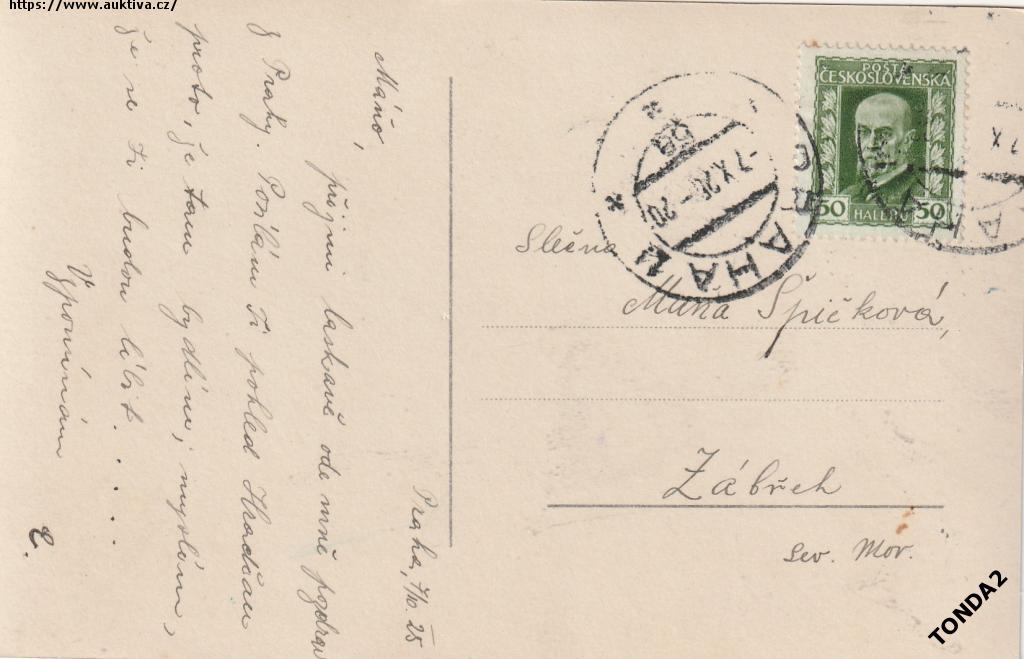 https://www.auktiva.cz/
Praha, 7/10. 25
Máňo,
přijmi laskavě ode mně pozdrav
z Prahy. Posílám Ti pohled Hradčan
proto, že tam bydlím; myslím,
že se Ti budou líbit. . . .
Vzpomínám
POŠTA
ČESKOSLOVENSKA
50 HALÉŘŮ 50
-7.X.26 - 20
6a
Slečna
Máňa Špičková,
Zábřeh
Sev. Mor.
TONDA2